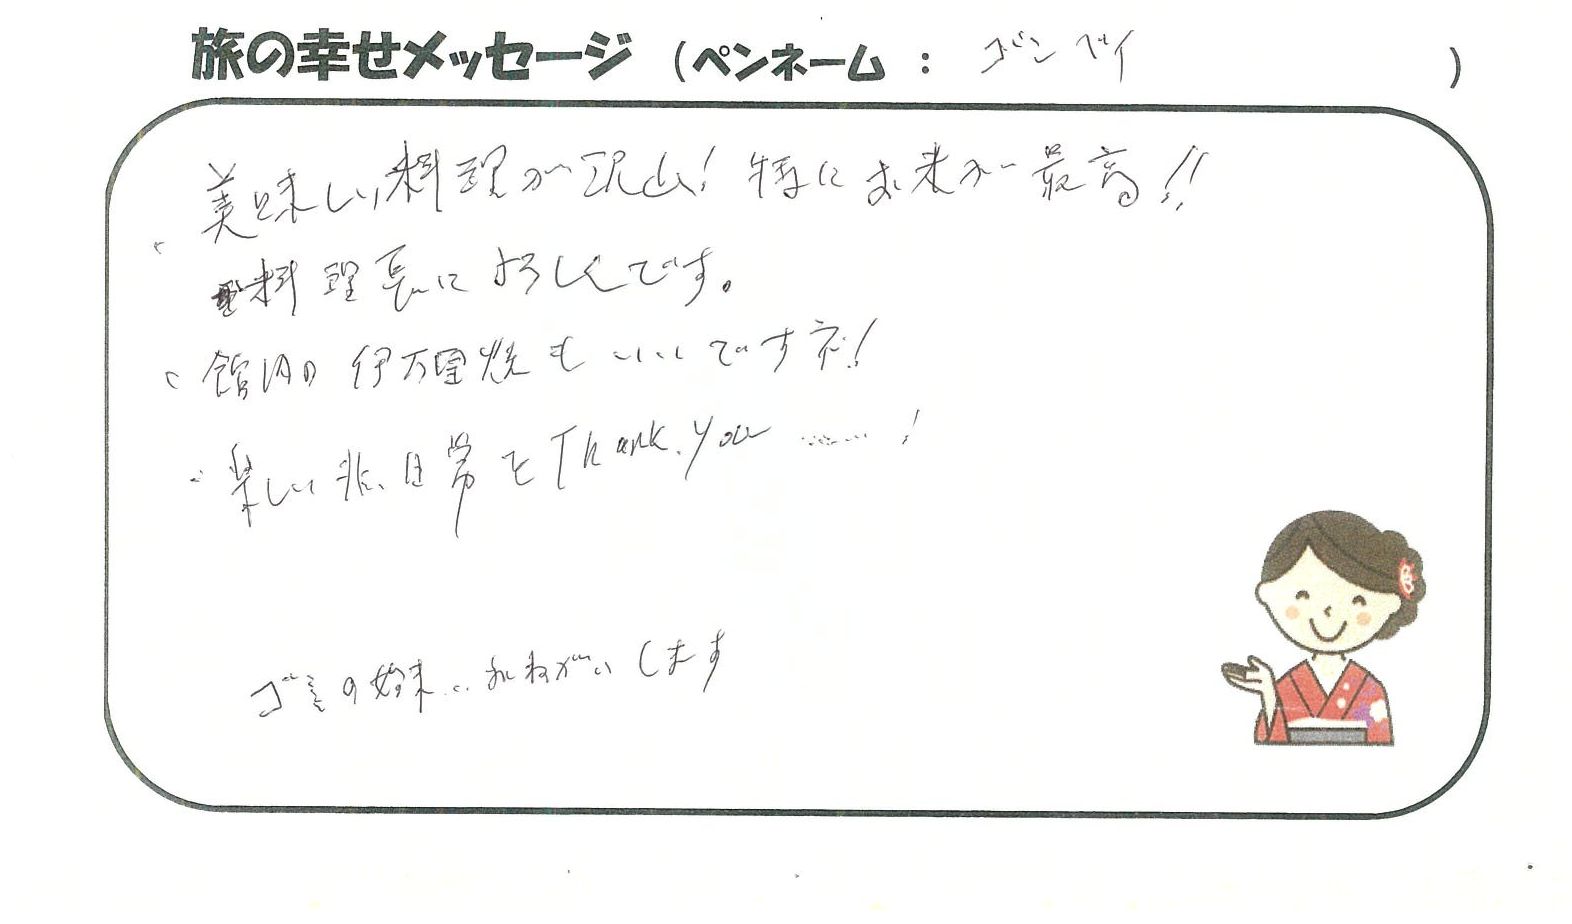 旅の幸せメッセージ (ペンネーム : ゴンベイ )
・美味しい料理が沢山! 特にお米が最高!!
料理長によろしくです。
・館内の伊万里焼もいいですネ!
・楽しい非日常を Thank.You ……!
ゴミの始末.. おねがいします